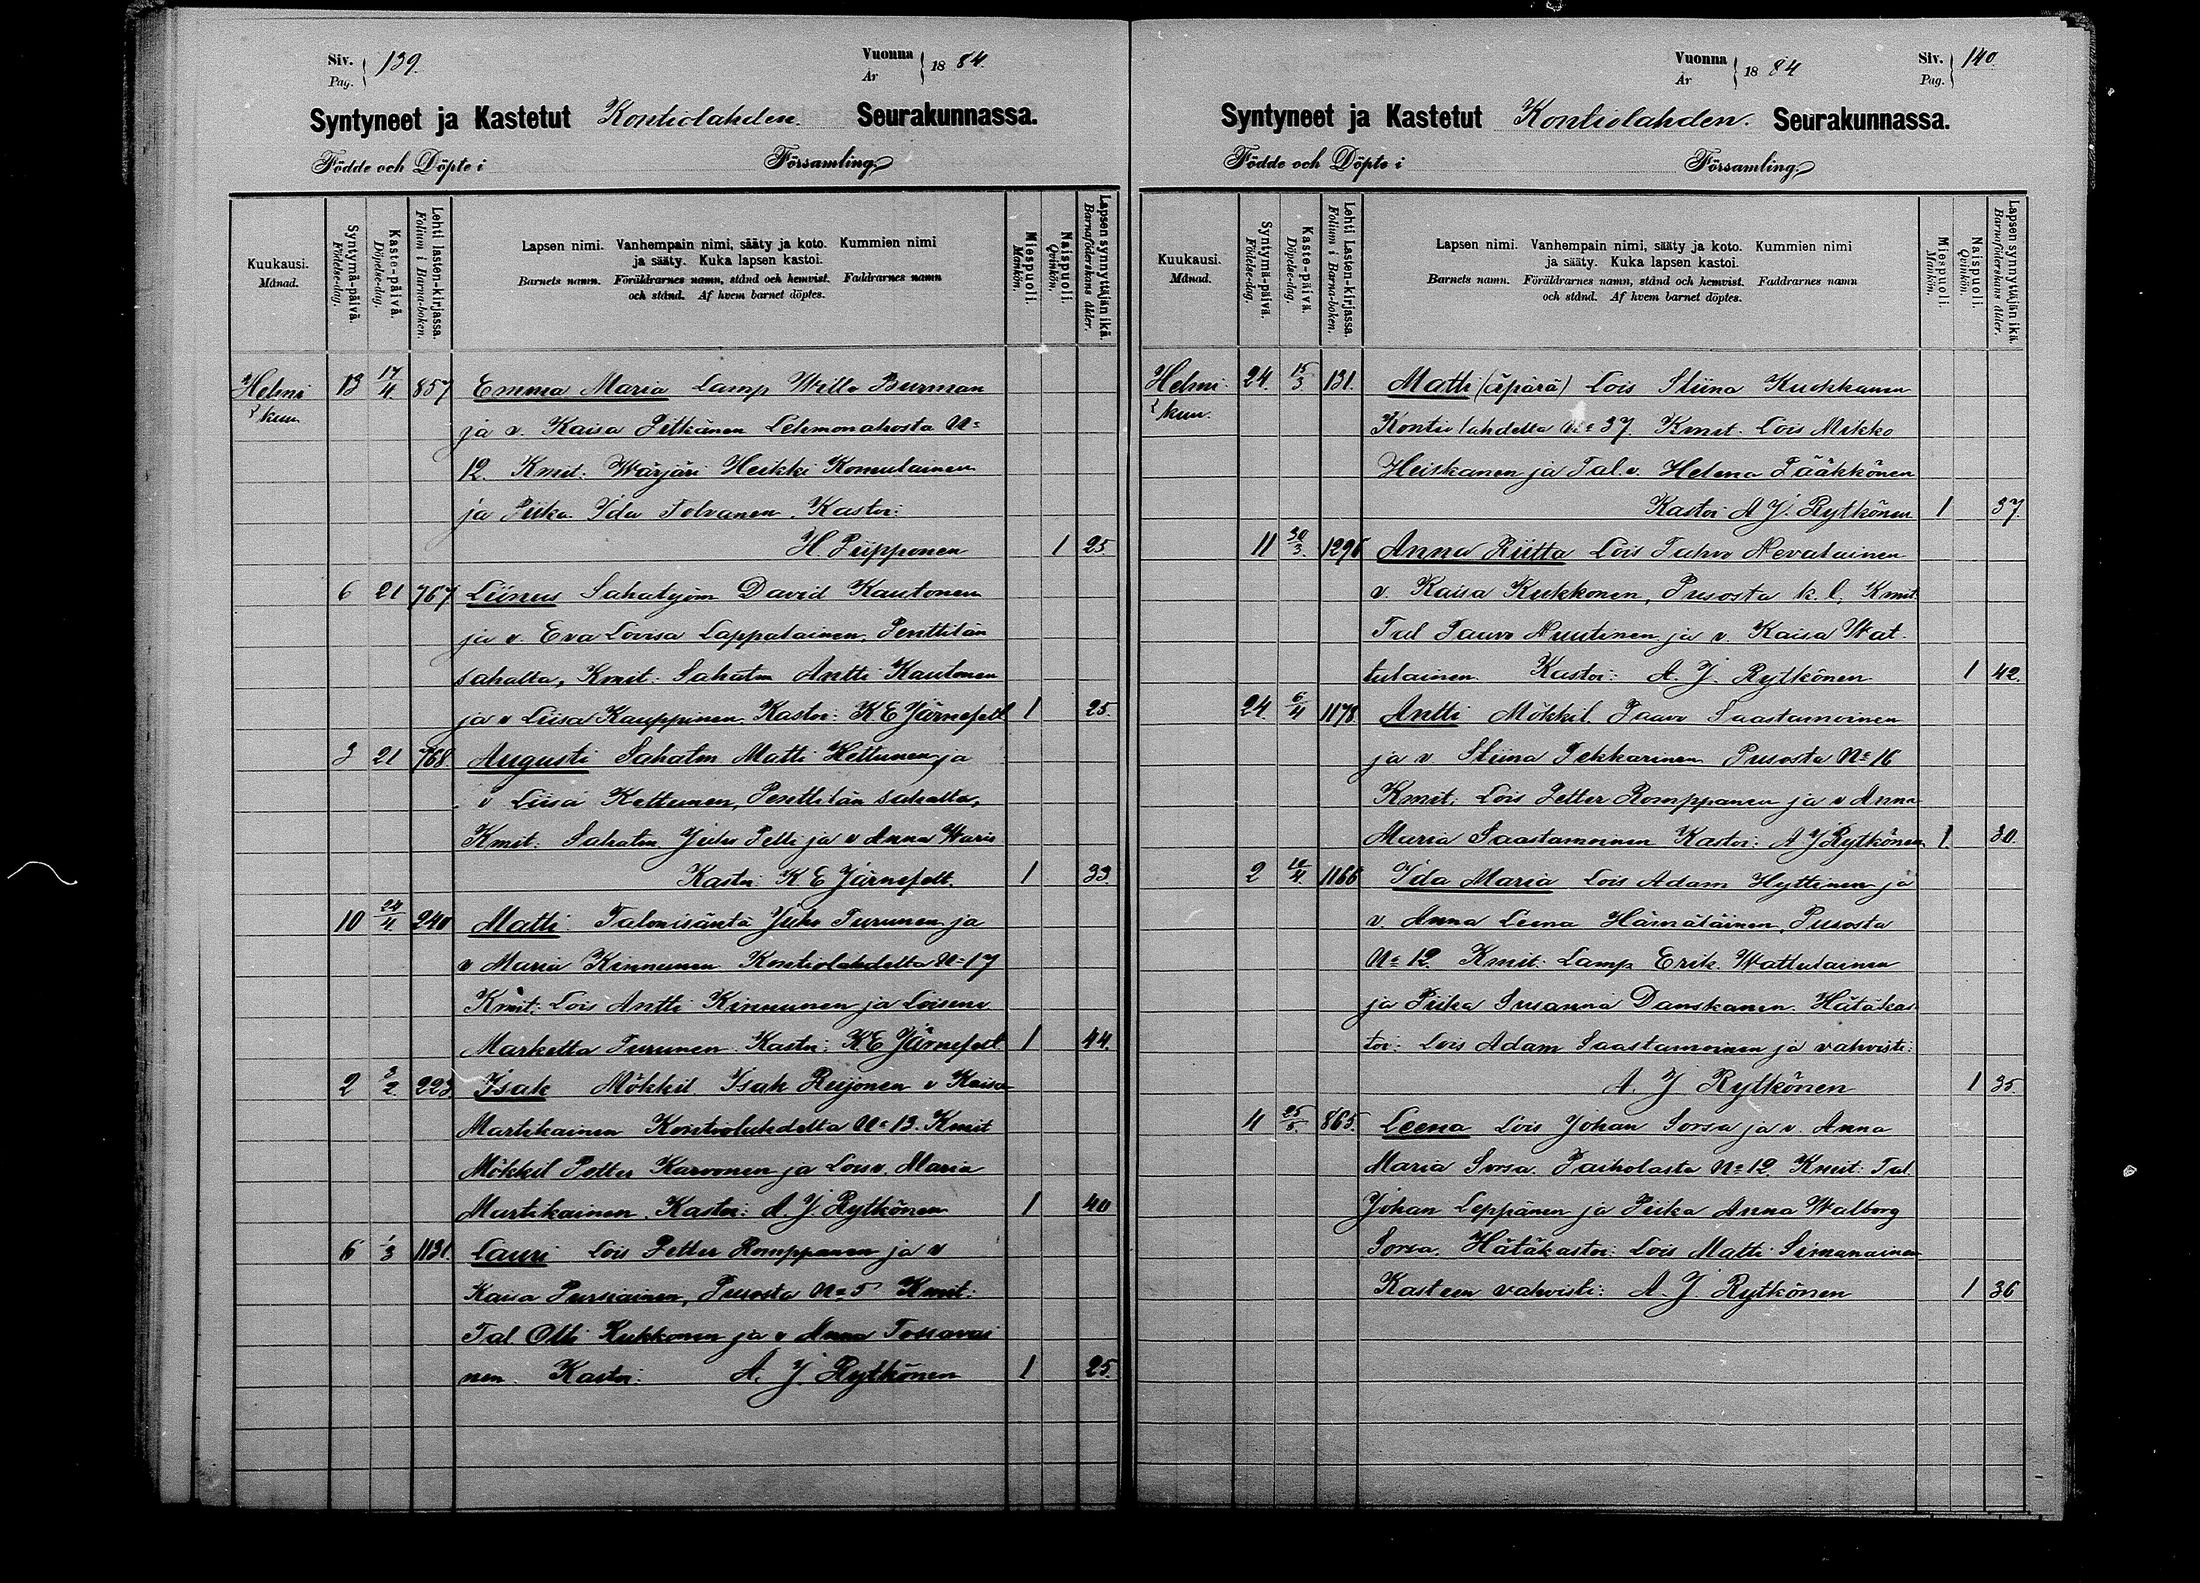 Siv. 139.
Pag.
Vuonna 1884.
År
Syntyneet ja Kastetut Kontiolahden Seurakunnassa.
Födde och Döpte i Församling
Kuukausi.
Månad.
Syntymä-päivä.
Födelse-dag.
Kaste-päivä.
Döpelse-dag.
Lehti lasten-kirjassa.
Folium i Barna-boken.
Lapsen nimi. Vanhempain nimi, sääty ja koto. Kummien nimi
ja sääty. Kuka lapsen kastoi.
Barnets namn. Föräldrarnes namn, stånd och hemvist. Faddrarnes namn
och stånd. Af hvem barnet döptes.
Miespuoli.
Mankön.
Naispuoli.
Qvinkön.
Lapsen synnyttäjän ikä.
Barnaföderskans ålder.
Helmi 13 17/4 857 Emma Maria Lamp Wille Burman
kuu ja v. Kaisa Pitkänen Lehmonahosta No
12. Kmit: Wärjäri Heikki Komulainen
ja Piika Ida Tolvanen. Kastoi:
H. Piipponen 1 25
6 21 767 Liinus Sahatyöm David Kautonen
ja v. Eva Lovisa Lappalainen, Penttilän
sahalta, Kmit: Sahatm Antti Kautonen
ja v Liisa Kauppinen Kastoi: K E Järnefelt 1 25.
3 21 768. Augusti Sahatm Matti Kettunen ja
v Liisa Kettunen, Penttilän sahalta,
Kmit: Sahatm Juho Pelli ja v Anna Waris
Kastoi: K E Järnefelt. 1 33.
10 24/4 240 Matti Talonisäntä Juho Turunen ja
v Maria Kinnunen Kontiolahdelta No 17
Kmit: Lois Antti Kinnunen ja Loisenv
Marketta Turunen. Kastoi: K E Järnefelt 1 44.
2 3/2. 223 Isak Mökkil Isak Reijonen v Kaisa
Martikainen Kontiolahdelta No 13. Kmit
Mökkil Petter Karvonen ja Lois v. Maria
Martikainen. Kastoi: A. J. Rytkönen 1 40
6 1/3 1131. Lauri Lois Petter Romppanen ja v
Kaisa Pursiainen, Pusosta No 5 Kmit:
Tal Olli Kukkonen ja v Anna Tossavai
nen. Kastoi: A. J. Rytkönen 1 25.
Siv. 140.
Pag.
Vuonna 1884
År
Syntyneet ja Kastetut Kontiolahden. Seurakunnassa.
Födde och Döpte i Församling
Kuukausi.
Månad.
Syntymä-päivä.
Födelse-dag.
Kaste-päivä.
Döpelse-dag.
Lehti Lasten-kirjassa.
Folium i Barna-boken.
Lapsen nimi. Vanhempain nimi, sääty ja koto. Kummien nimi
ja sääty. Kuka lapsen kastoi.
Barnets namn. Föräldrarnes namn, stånd och hemvist. Faddrarnes namn
och stånd. Af hvem barnet döptes.
Miespuoli.
Mankön.
Naispuoli.
Qvinkön.
Lapsen synnyttäjän ikä.
Barnaföderskans ålder.
Helmi 24. 15/3 131. Matti (äpärä) Lois Stiina Kukkonen
kuu. Kontiolahdelta No 37. Kmit. Lois Mikko
Heiskanen ja Tal. v. Helena Pääkkönen
Kastoi A J. Rytkönen 1 37.
11 30/3. 1296 Anna Riitta Lois Juho Nevalainen
v. Kaisa Kukkonen, Pusosta k. l. Kmit
Tal Paavo Nuutinen ja v. Kaisa Wat-
tulainen. Kastoi: A. J. Rytkönen 1 42.
24. 6/4 1178. Antti Mökkil. Paavo Saastamoinen
ja v Stiina Pekkarinen Pusosta No 16
Kmit: Lois Petter Romppanen ja v Anna
Maria Saastamoinen Kastoi: A J Rytkönen 1. 30.
2 12/4. 1166 Ida Maria Lois Adam Hyttinen ja
v. Anna Leena Hämäläinen, Pusosta
No 12. Kmit: Lamp Erik. Wattulainen
ja Piika Susanna Danskanen. Hätäkas
toi: Lois Adam Saastamoinen ja vahvisti:
A. J Rytkönen 1 35.
4 25/5. 865. Leena Lois Johan Sorsa ja v. Anna
Maria Sorsa. Paiholasta No 12 Kmit: Tal
Johan Leppänen ja Piika Anna Walborg
Sorsa. Hätäkastoi: Lois Matti Simanainen
Kasteen vahvisti: A. J. Rytkönen 1 36